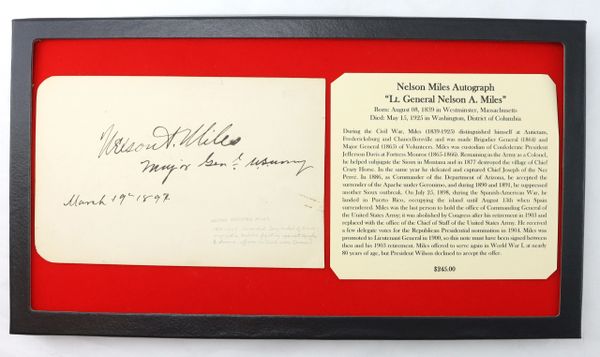 Nelson A. Miles
Major Genl. U.S. Army
March 19th 1897
Nelson Miles Autograph
"Lt. General Nelson A. Miles"
Born: August 08, 1839 in Westminster, Massachusetts
Died: May 15, 1925 in Washington, District of Columbia
During the Civil War, Miles (1839-1925) distinguished himself at Antietam,
Fredericksburg and Chancellorsville and was made Brigadier General (1864) and
Major General (1865) of Volunteers. Miles was custodian of Confederate President
Jefferson Davis at Fortress Monroe (1865-1866). Remaining in the Army as a Colonel,
he helped subjugate the Sioux in Montana and in 1877 destroyed the village of Chief
Crazy Horse. In the same year he defeated and captured Chief Joseph of the Nez
Perce. In 1886, as Commander of the Department of Arizona, he accepted the
surrender of the Apache under Geronimo, and during 1890 and 1891, he suppressed
another Sioux outbreak. On July 25, 1898, during the Spanish-American War, he
landed in Puerto Rico, occupying the island until August 13th when Spain
surrendered. Miles was the last person to hold the office of Commanding General of
the United States Army; it was abolished by Congress after his retirement in 1903 and
replaced with the office of the Chief of Staff of the United States Army. He received
a few delegate votes for the Republican Presidential nomination in 1904. Miles was
promoted to Lieutenant General in 1900, so this note must have been signed between
then and his 1903 retirement. Miles offered to serve again in World War I, at nearly
80 years of age, but President Wilson declined to accept the offer.
$245.00